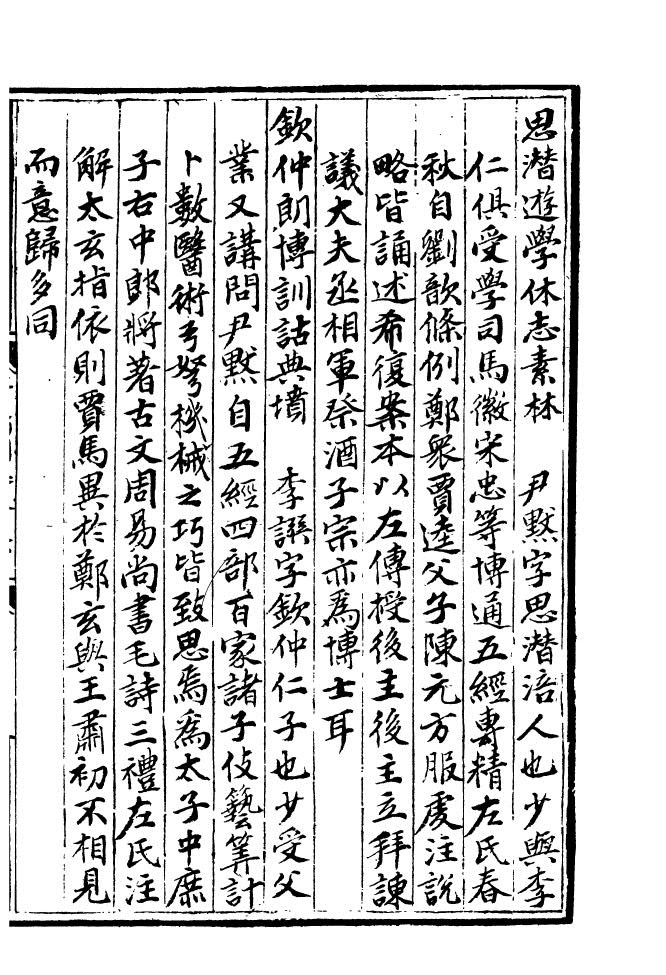 思潛遊學休志素林　尹默字思潛涪人也少與李
仁俱受學司馬徽宋忠等博通五經專精左氏春
秋自劉歆條例鄭衆賈逵父子陳元方服虔注說
略皆誦述希復案本以左傳授後主後主立拜諫
議大夫丞相軍祭酒子宗亦爲博士耳
欽仲朗博訓詁典墳　李譔字欽仲仁子也少受父
業又講問尹默自五經四部百家諸子伎藝筭計
卜數醫術弓弩機械之巧皆致思焉爲太子中庶
子右中郎將著古文周易尚書毛詩三禮左氏注
解太玄指依則賈馬異於鄭玄與王肅初不相見
而意歸多同